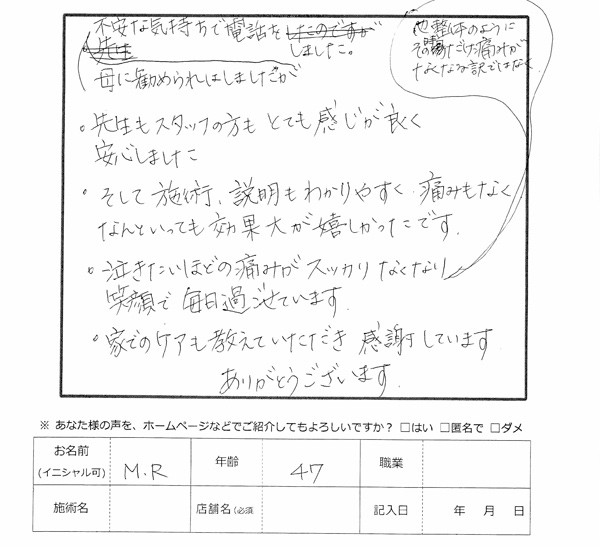 不安な気持ちで電話をしたのですが
しました。
・先生
母に勧められはしましたが
他整体のように
その場だけ痛みが
なくなる訳ではなく
・先生もスタッフの方も とても感じが良く
安心しました
・そして施術、説明もわかりやすく 痛みもなく
なんといっても効果大が嬉しかったです.
・泣きたいほどの痛みがスッカリなくなり
笑顔で毎日過ごせています.
・家でのケアも教えていただき 感謝しています
ありがとうございます.
※ あなた様の声を、ホームページなどでご紹介してもよろしいですか？ □はい □匿名で □ダメ
お名前
(イニシャル可) M.R 年齢 47 職業
施術名 店舗名(必須 記入日 年 月 日